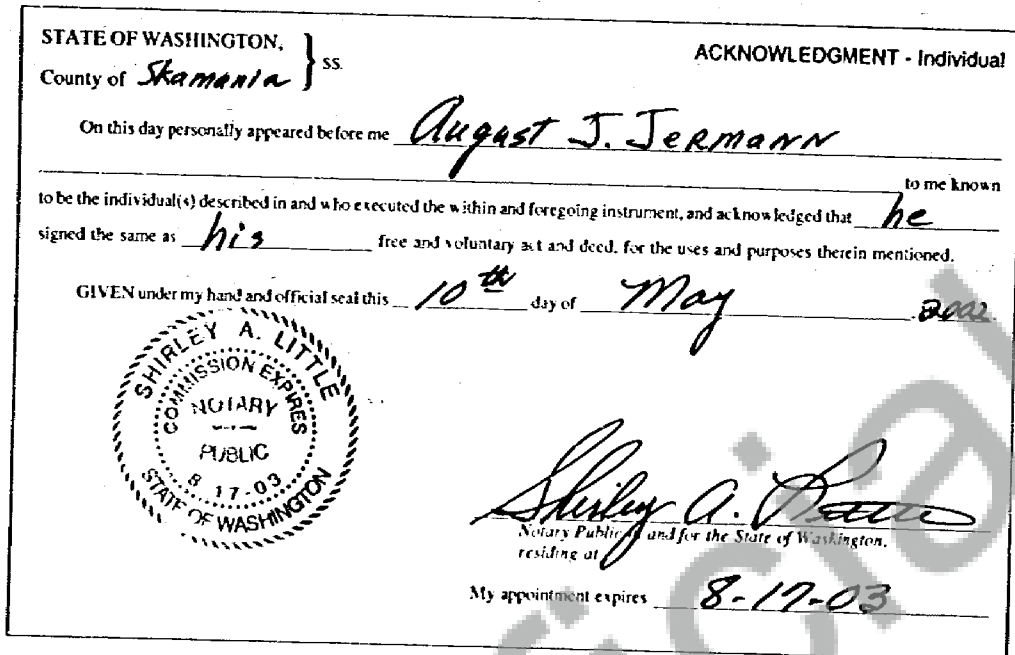 STATE OF WASHINGTON,
County of Skamania } ss.
ACKNOWLEDGMENT - Individual
On this day personally appeared before me August J. Jermann
to me known
to be the individual(s) described in and who executed the within and foregoing instrument, and acknowledged that he
signed the same as his free and voluntary act and deed, for the uses and purposes therein mentioned.
GIVEN under my hand and official seal this 10th day of May 2002
SHIRLEY A. LITTLE
COMMISSION EXPIRES
NOTARY
PUBLIC
8-17-03
STATE OF WASHINGTON
Shirley A. Little
Notary Public and for the State of Washington,
residing at
My appointment expires 8-17-03